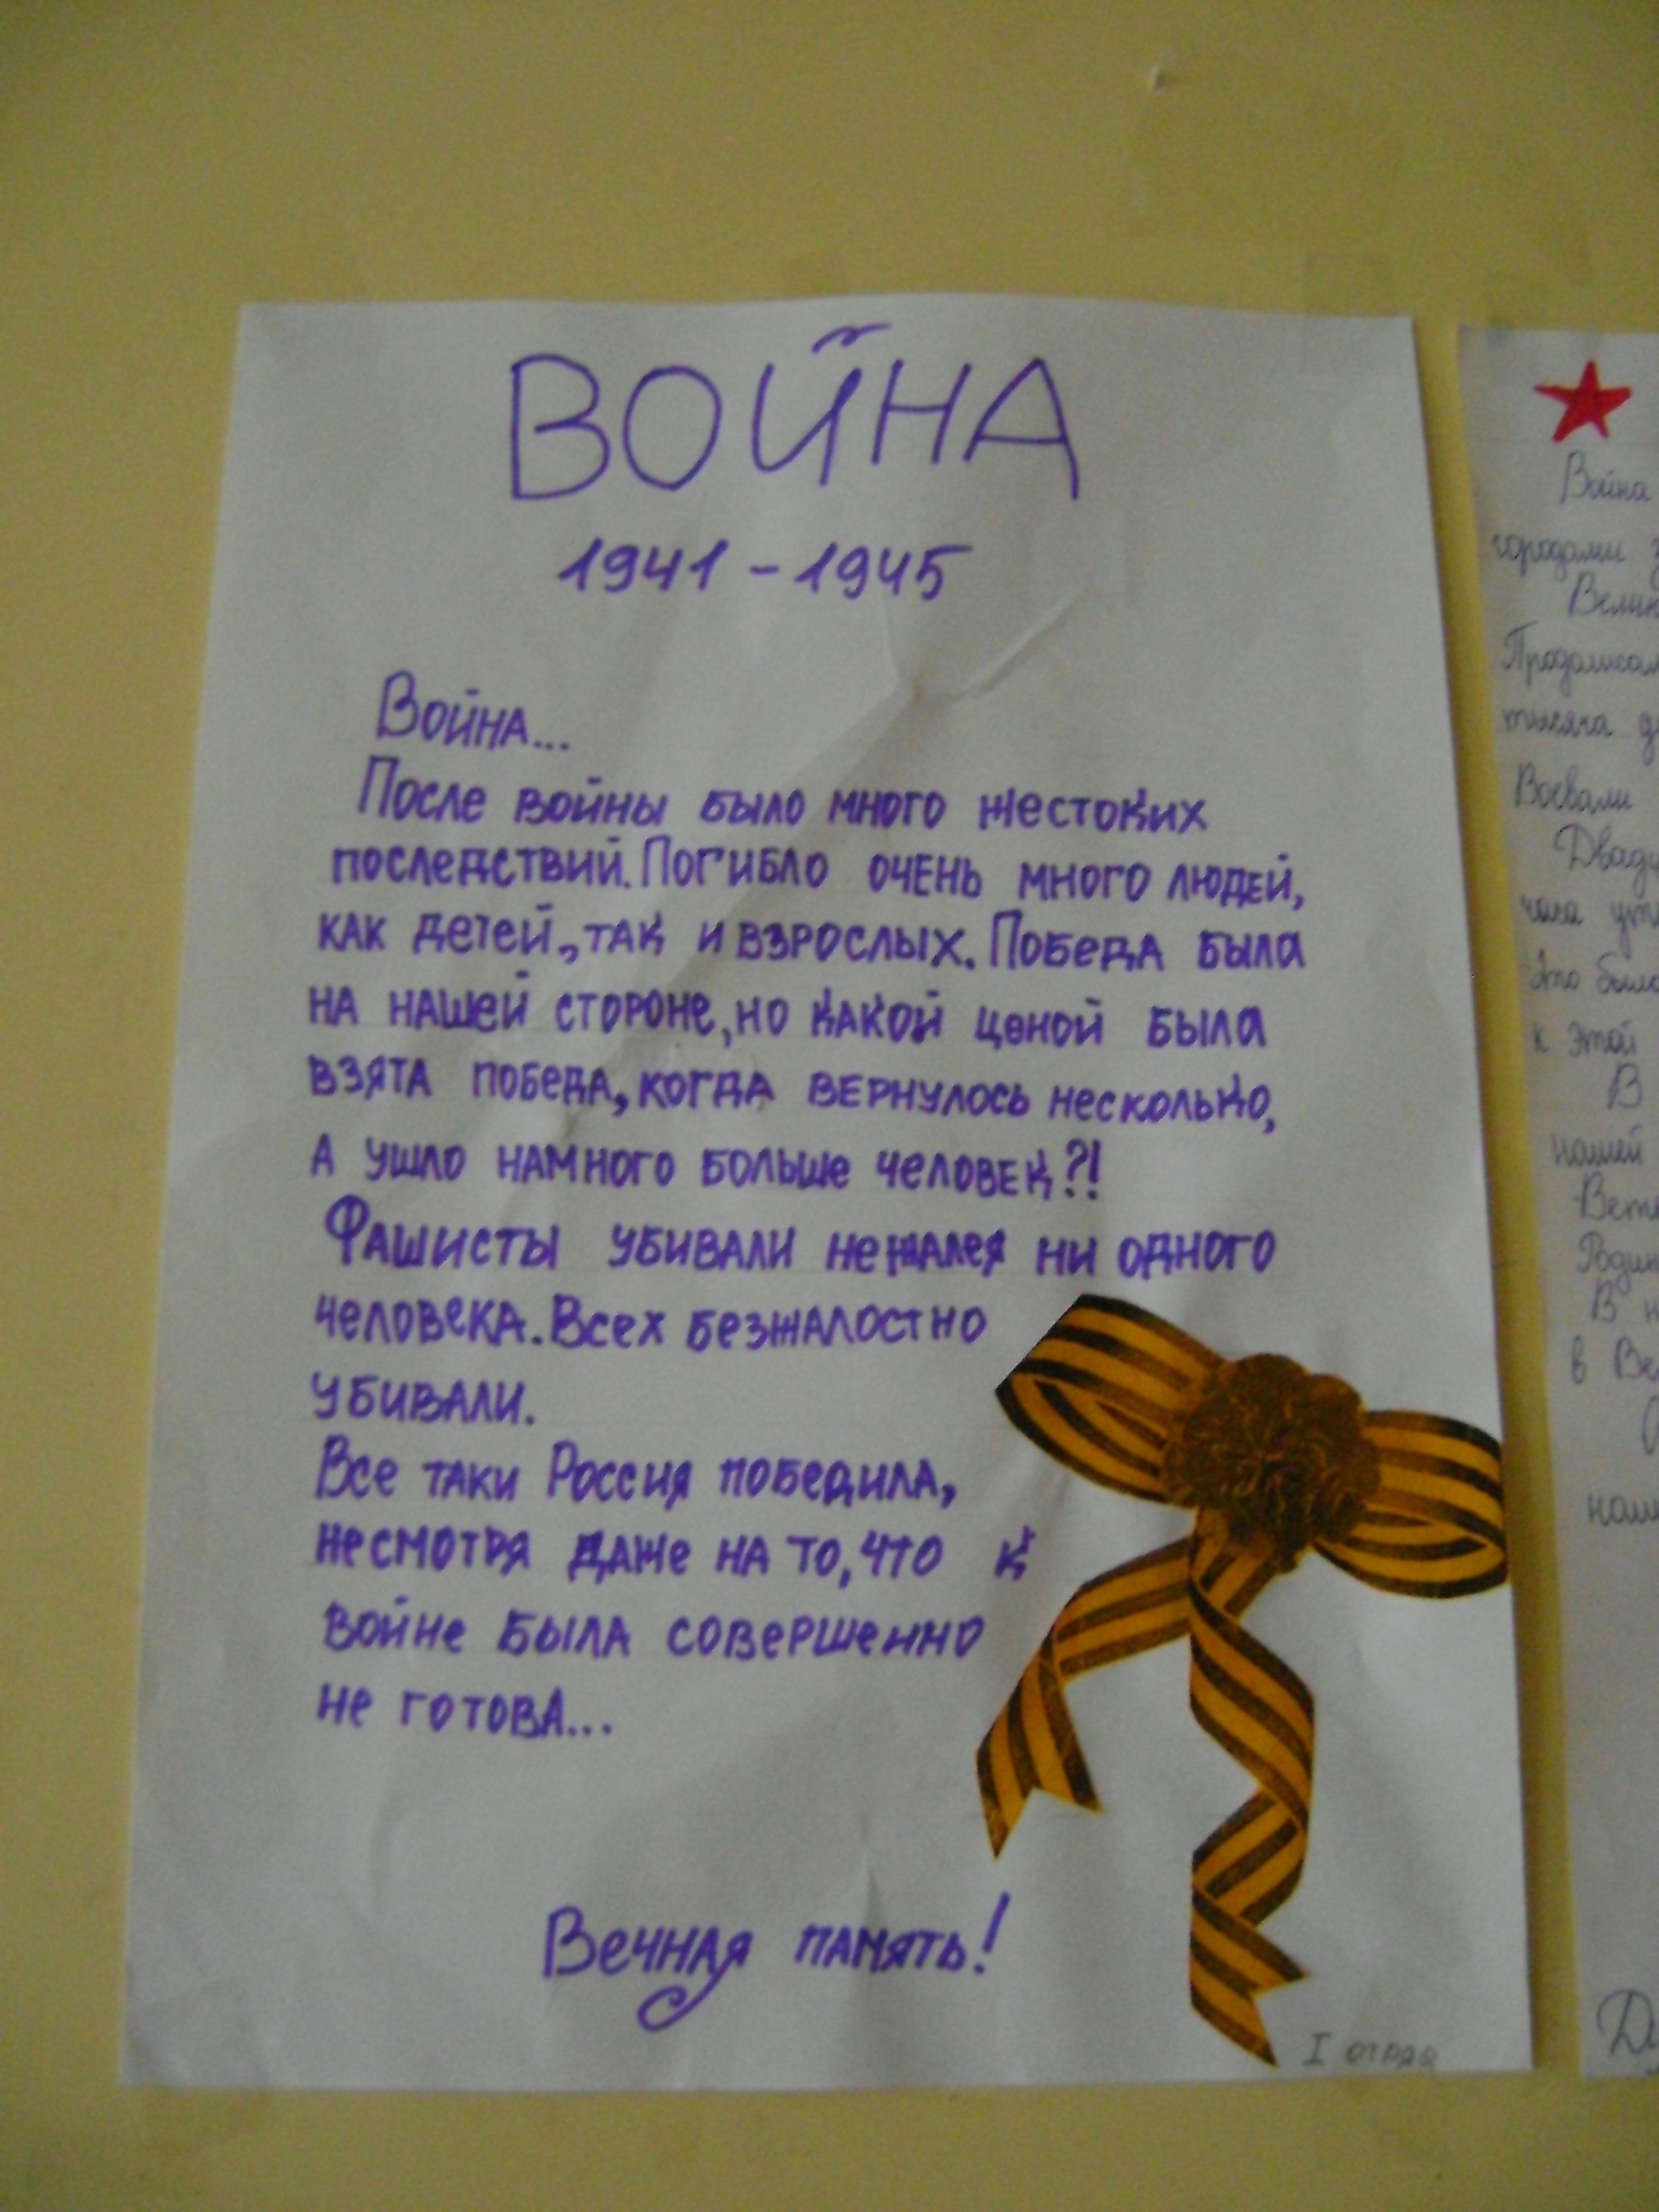 ВОЙНА
1941 - 1945
Война...
После войны было много жестоких
последствий. Погибло очень много людей,
как детей, так и взрослых. Победа была
на нашей стороне, но какой ценой была
взята победа, когда вернулось несколько,
а ушло намного больше человек?!
Фашисты убивали не жалея ни одного
человека. Всех безжалостно
убивали.
Все таки Россия победила,
несмотря даже на то, что к
войне была совершенно
не готова...
Вечная память!
I отряд
Война
городами
Воевали
часа
Это было
к этой
В
нашей
В н
в Ве